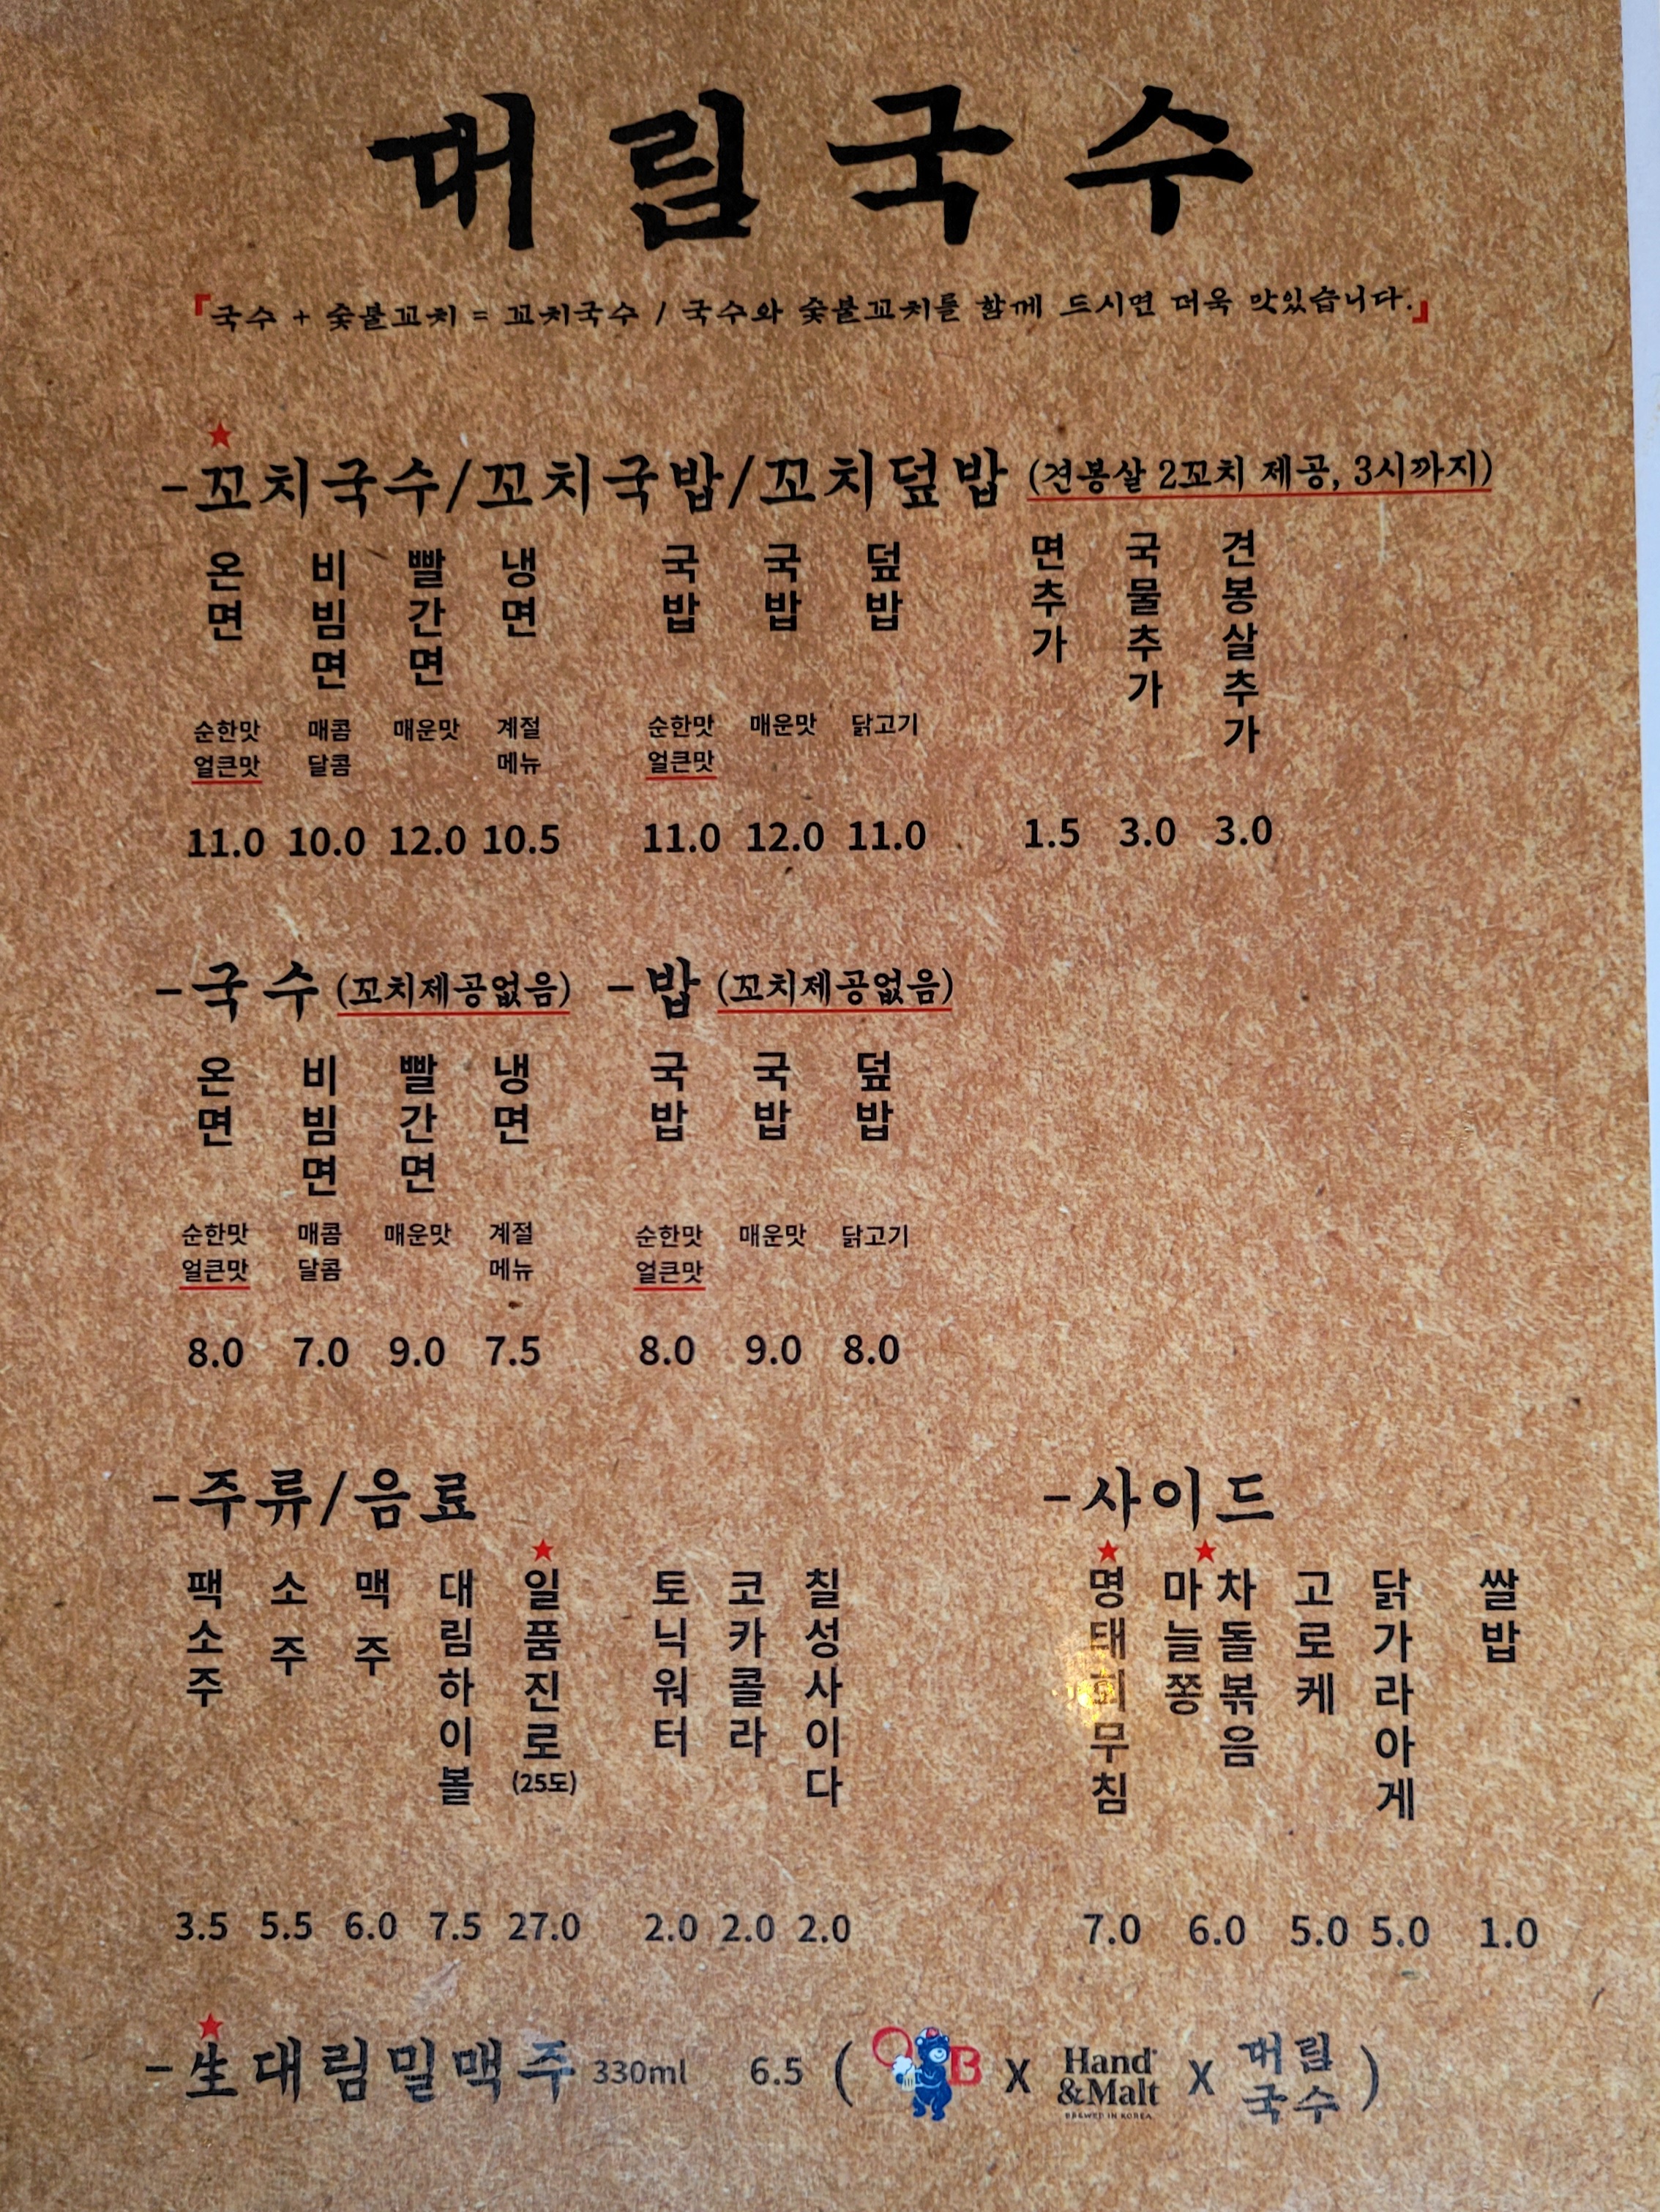 대림국수
『국수 + 숯불꼬치 = 꼬치국수 / 국수와 숯불꼬치를 함께 드시면 더욱 맛있습니다.』
-꼬치국수/꼬치국밥/꼬치덮밥 (견봉살 2꼬치 제공, 3시까지)
온면 비빔면 빨간면 냉면 국밥 국밥 덮밥 면추가 국물추가 견봉살추가
순한맛 매콤 매운맛 계절 순한맛 매운맛 닭고기
얼큰맛 달콤 메뉴 얼큰맛
11.0 10.0 12.0 10.5 11.0 12.0 11.0 1.5 3.0 3.0
-국수 (꼬치제공없음) -밥 (꼬치제공없음)
온면 비빔면 빨간면 냉면 국밥 국밥 덮밥
순한맛 매콤 매운맛 계절 순한맛 매운맛 닭고기
얼큰맛 달콤 메뉴 얼큰맛
8.0 7.0 9.0 7.5 8.0 9.0 8.0
-주류/음료 -사이드
팩소주 소주 맥주 대림하이볼 일품진로 (25도) 토닉워터 코카콜라 칠성사이다 명태회무침 마늘쫑 차돌볶음 고로케 닭가라아게 쌀밥
3.5 5.5 6.0 7.5 27.0 2.0 2.0 2.0 7.0 6.0 5.0 5.0 1.0
-生대림밀맥주 330ml 6.5 ( OB X Hand &Malt BREWED IN KOREA X 대림국수 )